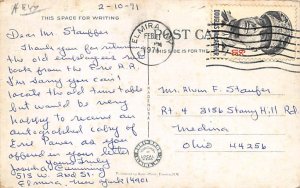 2-10-71
THIS SPACE FOR WRITING
Dear Mr. Stauffer
Thank you for returning
the old employees rule
book from the Erie R.R.
I'm sorry you can't
locate the old time table
but would be very
happy to receive an
autographed copy of
Erie Power as you
offered in your letter
Yours Truly
Cumming
513 W. 2nd St.
Elmira, New York 14901
POST CARD
THIS SIDE IS FOR THE
ELMIRA
FEB
PM
1971
Mr. Alvin F. Staufer
Rt. 4 3156 Stony Hill Rd.
Medina
Ohio 44256